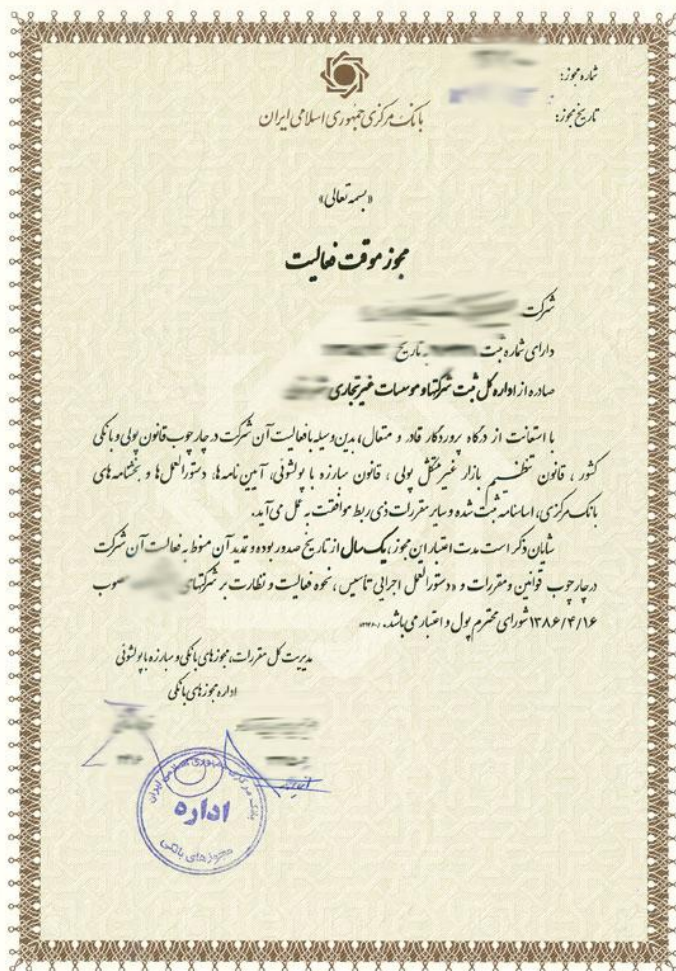 شماره مجوز:
تاریخ مجوز:
بانک مرکزی جمهوری اسلامی ایران
«بسمه تعالی»
مجوز موقت فعالیت
شرکت
دارای شماره ثبت به تاریخ
صادره از اداره کل ثبت شرکتها و موسسات غیرتجاری
با استعانت از درگاه پروردگار قادر و متعال، بدین وسیله با فعالیت آن شرکت در چارچوب قانون پولی و بانکی
کشور ، قانون تنظیم بازار غیرمتشکل پولی ، قانون مبارزه با پولشوئی، آیین نامه ها، دستورالعمل ها و بخشنامه های
بانک مرکزی، اساسنامه ثبت شده و سایر مقررات ذی ربط موافقت به عمل می آید.
شایان ذکر است مدت اعتبار این مجوز، یک سال از تاریخ صدور بوده و تمدید آن منوط به فعالیت آن شرکت
در چارچوب قوانین و مقررات و «دستورالعمل اجرایی تاسیس، نحوه فعالیت و نظارت بر شرکتهای مصوب
۱۳۸۶/۴/۱۶ شورای محترم پول و اعتبار می باشد.
مدیریت کل مقررات، مجوزهای بانکی و مبارزه با پولشوئی
اداره مجوزهای بانکی
بانک مرکزی جمهوری اسلامی ایران
اداره
مجوزهای بانکی